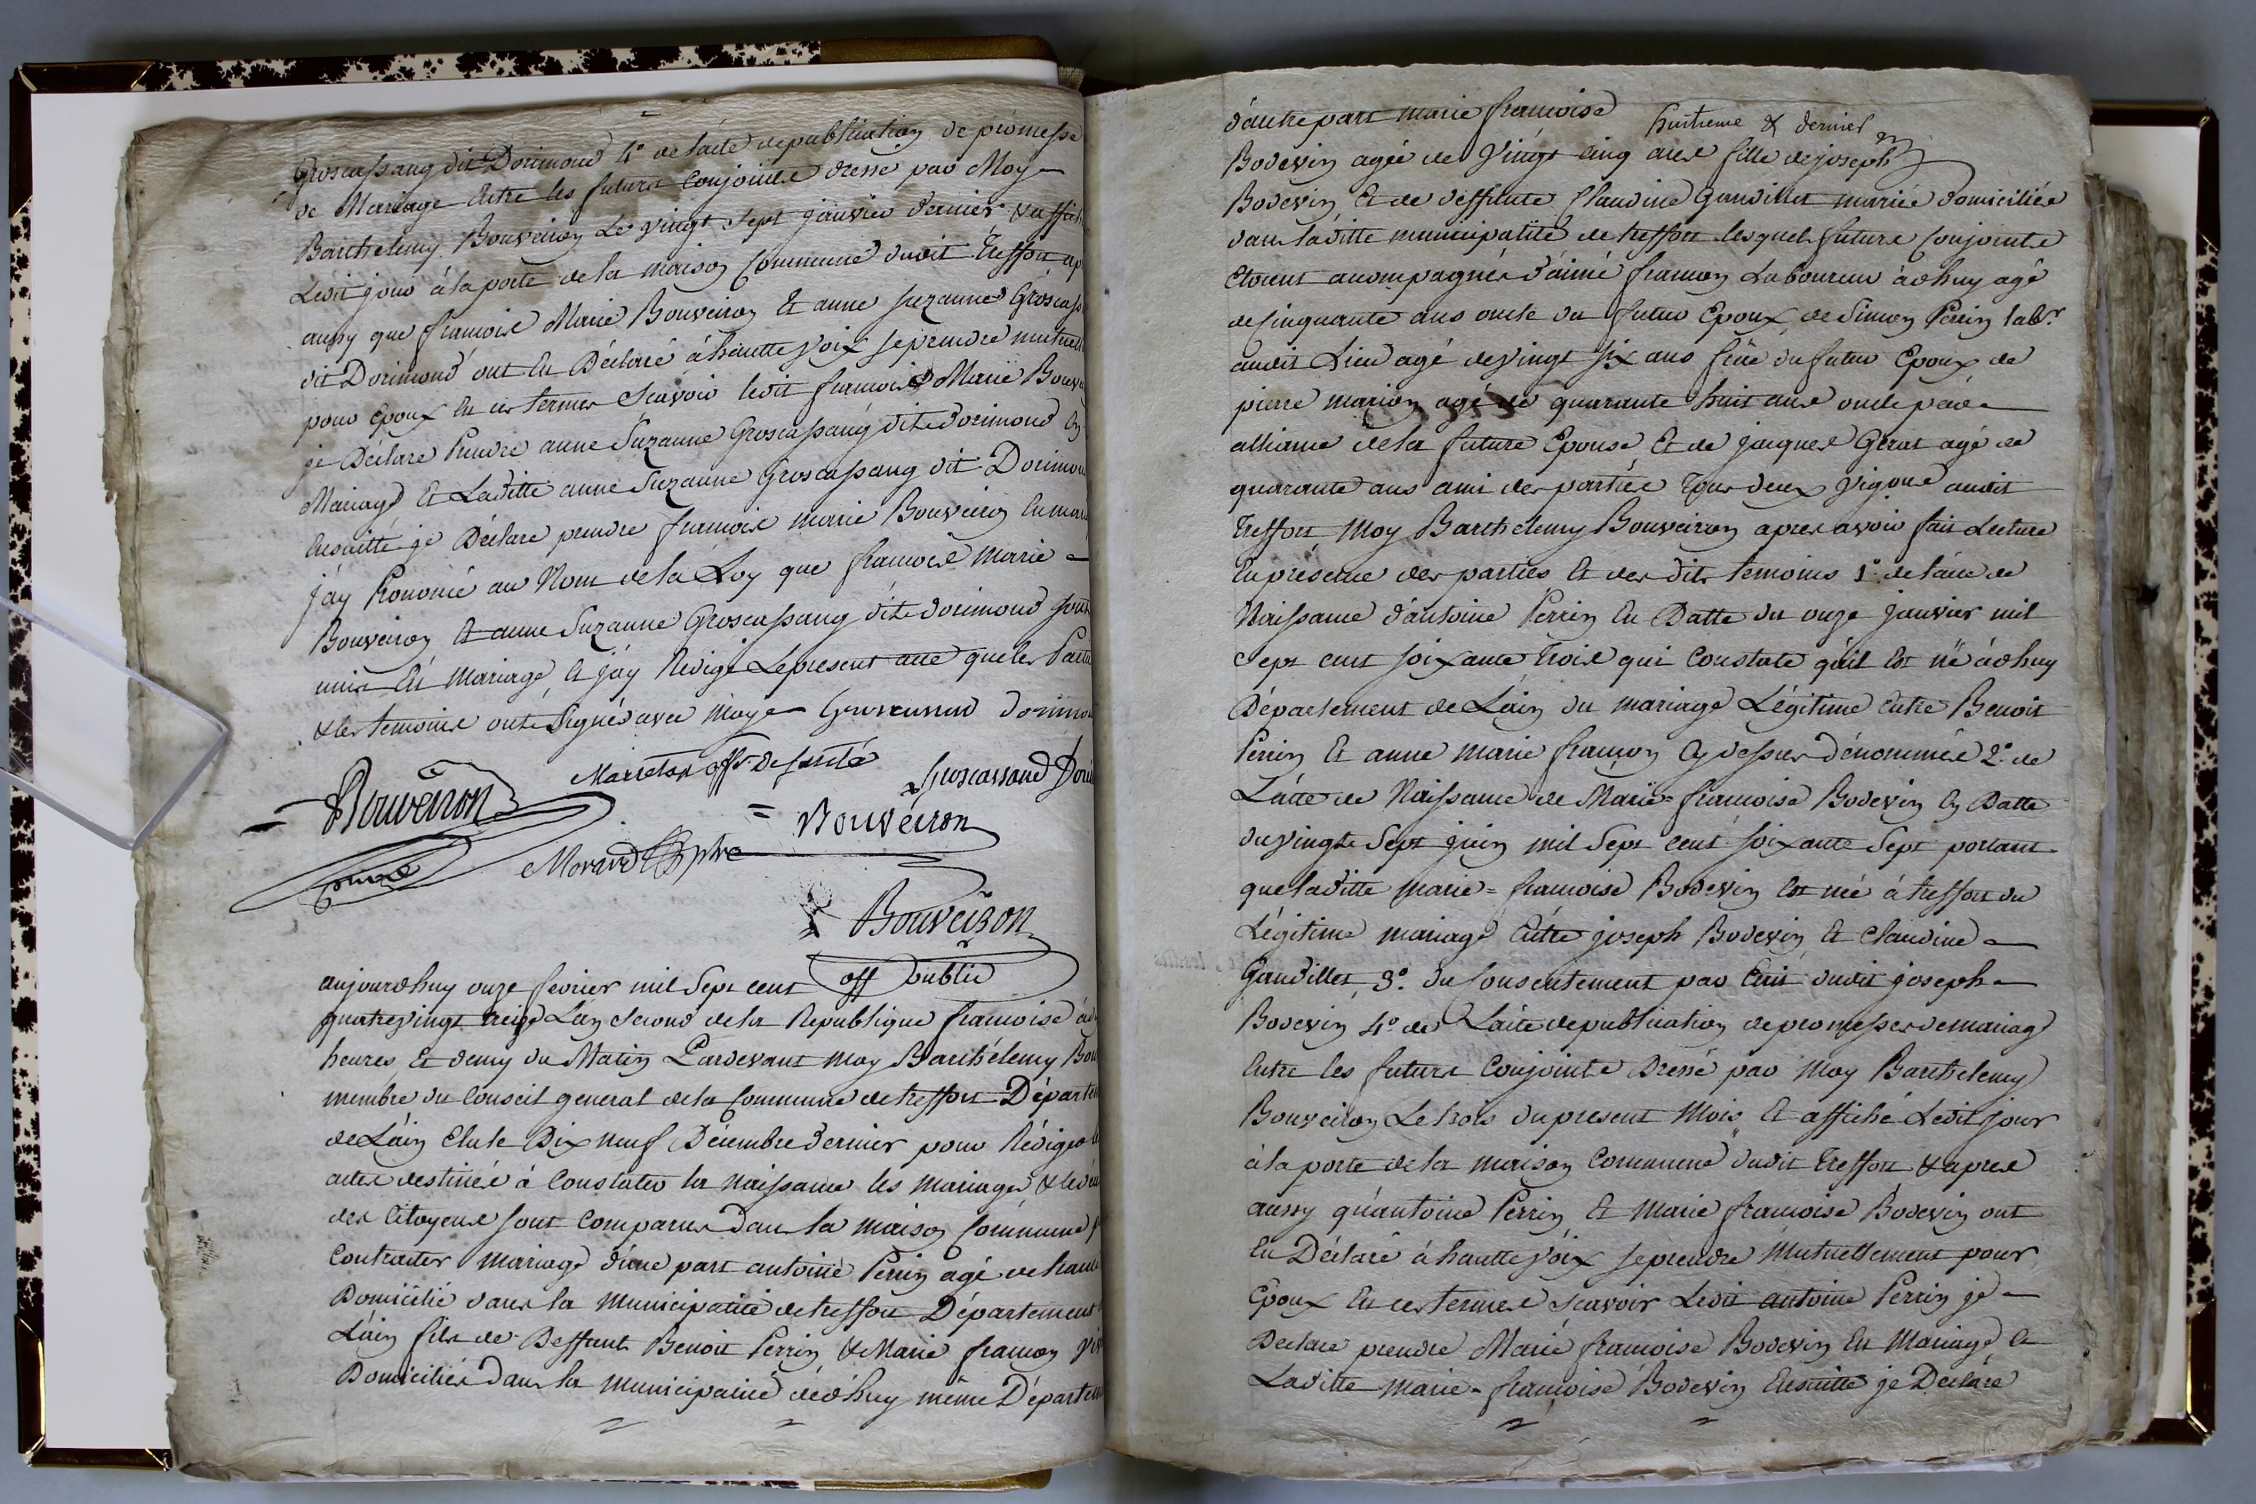 Groscassang dit Dorimond 4o de lacte de publication de promesse
de Mariage Entre les futurs Conjoints dressé par Moy
Barthelemy Bouveiron Le vingt Sept janvier dernier & affich
Ledit jour à la porte de la maison Commune dudit Treffort ap
aussy que francoise Marie Bouveiron Et anne suzanne Groscass
dit Dorimond ont En Déclaré à hautte voix se prendre mutuell
pour Epoux En ces termes Scavoir ledit francois Marie Bouv
je Déclare Prendre anne Suzanne Groscassang dite dorimond En
Mariage Et Laditte anne Suzanne Groscassang dit Dorimon
Ensuitte je Déclare prendre francois marie Bouveiron En mari
j'ay Prononcé au Nom de la Loy que francois marie
Bouveiron Et anne Suzanne Groscassang dite dorimond sont
unis En Mariage, Et j'ay Redigé Le present acte que les Parti
& les temoins ont Signés avec Moy Groscassand dorimon
off de santé Groscassand Dori
Bouveiron = Bouveiron
Morand
Bouveiron
aujourdhuy onze fevrier mil Sept cent off public
quatrevingt treize L'an Second de la Republique francoise à
heures Et demy du Matin Pardevant moy Barthélemy Bou
membre du Conseil general de la Commune de treffort Départem
de L'ain Elu le Dix neuf Décembre dernier pour Rédiger
actes destinés à Constater la Naissance les mariages & le dé
des Citoyens sont Comparus Dans la maison Commune p
Contracter Mariage d'une part antoine Perrin agé de trante
Domicilié dans la Municipalité de treffort Département
L'ain fils de Deffunt Benoit Perrin & Marie francon
Domiciliés Dans la municipalité même Départem
d'autre part marie francoise
huitieme & dernier
Bodevin agée de Vingt cinq ans fille de joseph
Bodevin Et de deffunte Claudine Gaudillet mariée domiciliée
dans laditte municipalité de treffort lesquels futurs Conjoints
Etoient accompagnés d'aimé francon Laboureur agé
de sinquante ans oncle du futur Epoux, de Simon Perrin labr
audit Lieu agé de vingt six ans frère du futur Epoux de
pierre marion agé de quarante huit ans oncle par
alliance de la future Epouse Et de jacques Gerat agé de
quarante ans ami des parties Tous deux Vigons audit
Treffort Moy Barthelemy Bouveiron apres avoir fait Lecture
En présence des parties Et des dits temoins 1o de l'acte de
Naissance d'antoine Perrin En Datte du onze janvier mil
Sept cent soixante trois qui Constate qu'il Est né
Département de L'ain du mariage Légitime Entre Benoit
Perrin Et anne marie françon Cy dessus dénommés 2o de
L'acte de Naissance de Marie = francoise Bodevin En Datte
du vingt Sept juin mil Sept cent soixante Sept portant
que laditte marie = francoise Bodevin Est née à treffort du
Légitime mariage Entre joseph Bodevin Et Claudine
Gaudillet, 3o du Consentement par Ecrit dudit joseph
Bodevin 4o de L'acte de publication de promesses de mariage
Entre les futurs Conjoints Dressé par Moy Barthelemy
Bouveiron Le trois du present Mois Et affiché Ledit jour
à la porte de la maison Commune dudit Treffort & apres
aussy qu'antoine Perrin Et Marie francoise Bodevin ont
En Déclaré à hautte voix se prendre Mutuellement pour
Epoux En ces termes Scavoir Ledit antoine Perrin je
Declare prendre Marie francoise Bodevin En Mariage Et
Laditte Marie = françoise Bodevin Ensuitte je Declare